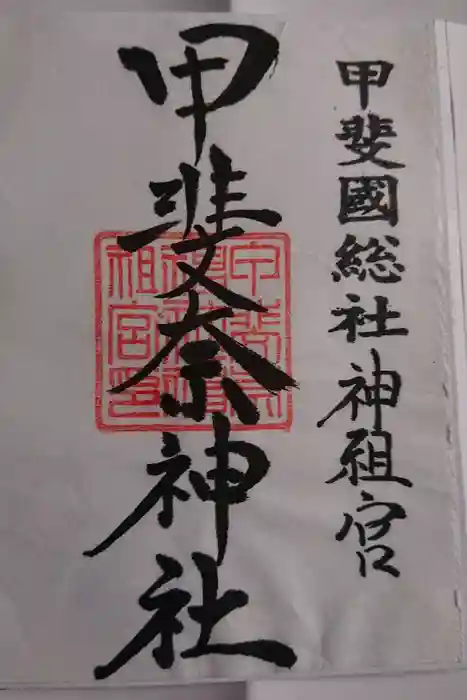 甲斐國総社神祖宮
甲斐奈神社